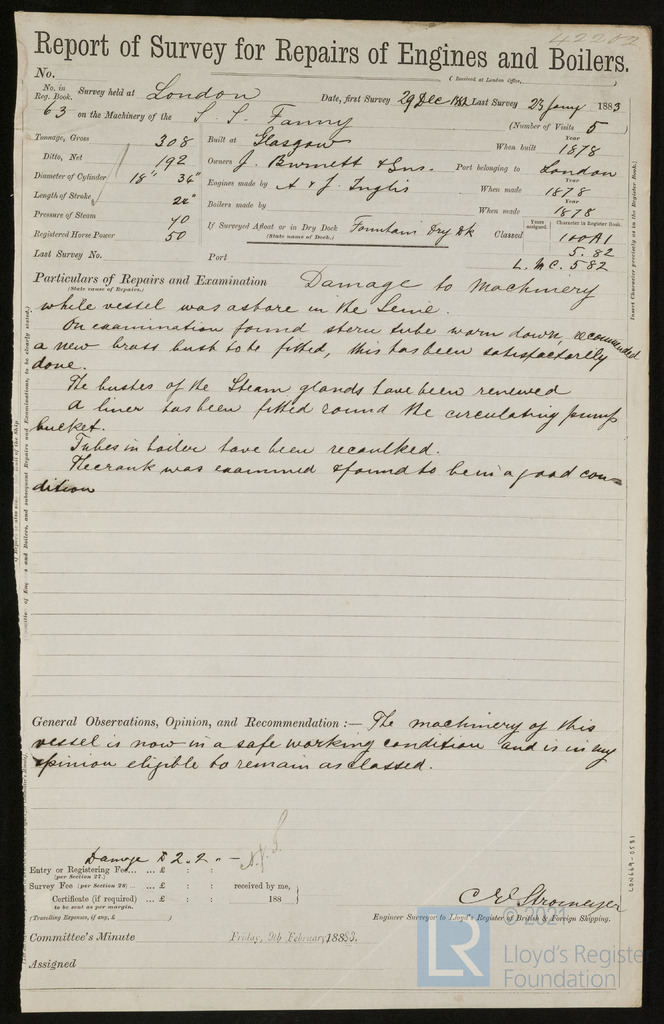 42202
Report of Survey for Repairs of Engines and Boilers.
No.
(Received at London Office,
No. in Reg. Book. Survey held at London Date, first Survey 29 Dec 1882 Last Survey 23 Jany 1883
63 on the Machinery of the S. S. Fanny (Number of Visits 5)
Tonnage, Gross 308
Ditto, Net 192
Diameter of Cylinder 18" 34"
Length of Stroke
Pressure of Steam 70
Registered Horse Power 50
Last Survey No.
Built at Glasgow When built Year 1878
Owners J. Burnett & Sons. Port belonging to London
Engines made by A & J. Inglis When made Year 1878
Boilers made by When made Year 1878
If Surveyed Afloat or in Dry Dock Fountain Dry Dk
(State name of Dock.)
Classed Years assigned. Character in Register Book. 100A1
5.82
Port L.M.C. 5 82
Insert Character precisely as in the Register Book.
Particulars of Repairs and Examination Damage to Machinery
(State cause of Repairs.)
while vessel was ashore in the Seine.
On examination found stern tube worn down, recommended
a new brass bush to be fitted, this has been satisfactorely
done.
The bushes of the Steam glands have been renewed
A liner has been fitted round the circulating pump
bucket.
Tubes in boiler have been recaulked.
The crank was examined & found to be in a good con=
dition
General Observations, Opinion, and Recommendation :— The machinery of this
vessel is now in a safe working condition and is in my
opinion eligible to remain as classed.
Damage £ 2. 2. " –
Entry or Registering Fee... ... £ : :
(per Section 27.)
Survey Fee (per Section 28) .. ... £ : : received by me,
Certificate (if required) ... £ : : 188
to be sent as per margin.
(Travelling Expenses, if any, £ )
C E Stromeyer
Engineer Surveyor to Lloyd's Register of British & Foreign Shipping.
Committee's Minute Friday, 9th February 1883.
Assigned
LON669-0581
LR
© 2021
Lloyd's Register
Foundation